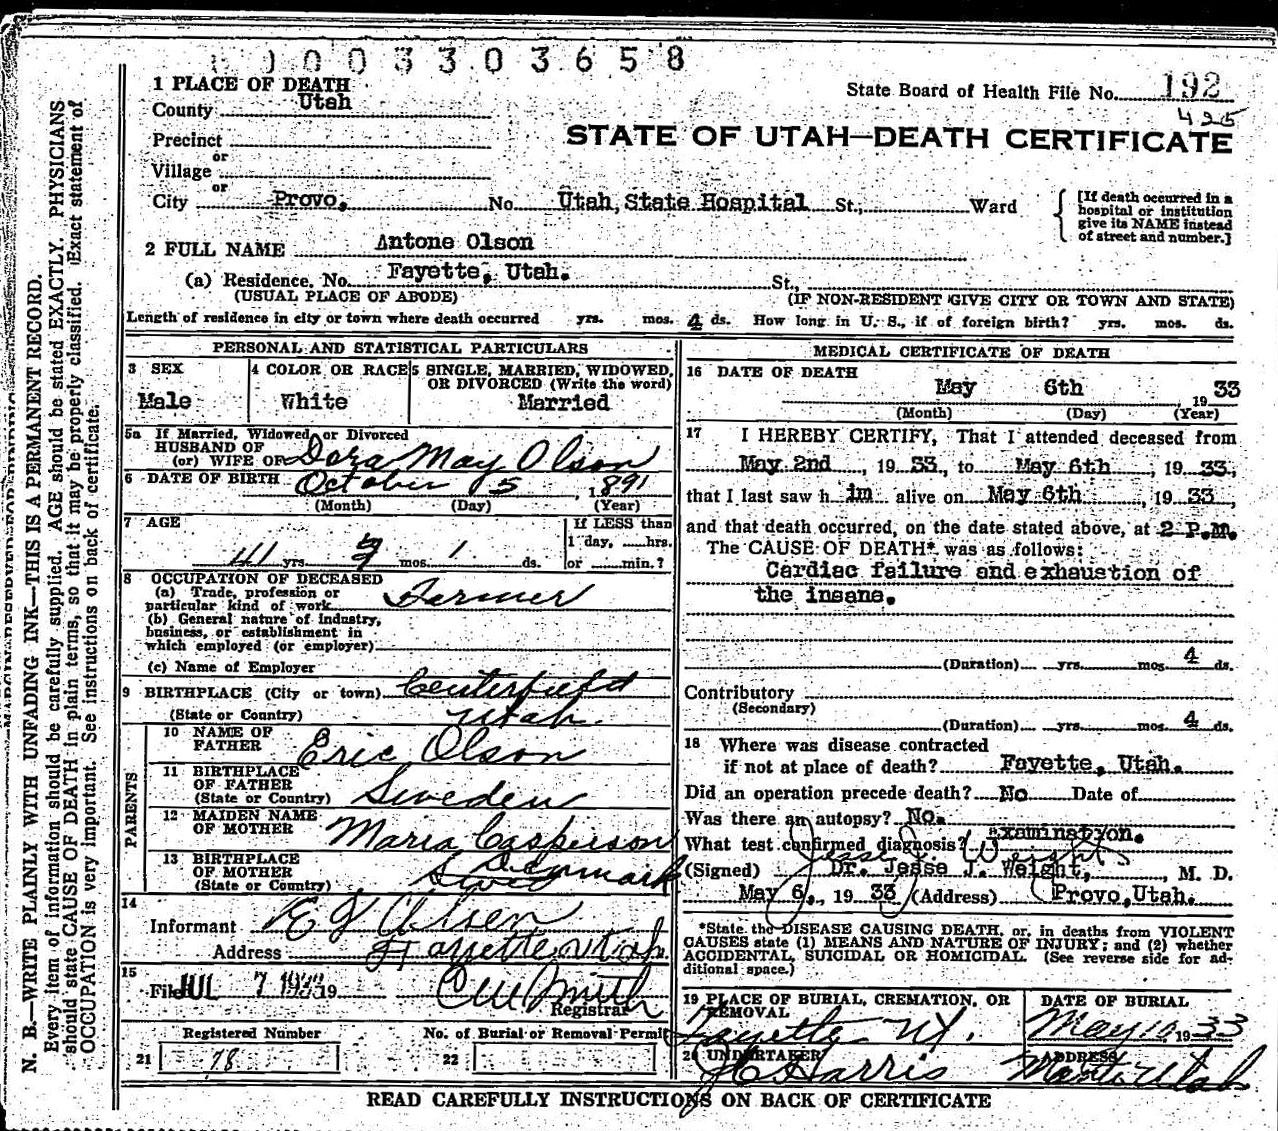 0 0 3 3 0 3 6 5 8
1 PLACE OF DEATH
County Utah
State Board of Health File No. 192
425
STATE OF UTAH—DEATH CERTIFICATE
Precinct
or
Village
or
City Provo, No. Utah State Hospital St., Ward
[If death occurred in a hospital or institution give its NAME instead of street and number.]
2 FULL NAME Antone Olson
(a) Residence. No. Fayette, Utah. St.,
(USUAL PLACE OF ABODE) (IF NON-RESIDENT GIVE CITY OR TOWN AND STATE)
Length of residence in city or town where death occurred yrs. mos. 4 ds. How long in U. S., if of foreign birth? yrs. mos. ds.
PERSONAL AND STATISTICAL PARTICULARS
3 SEX 4 COLOR OR RACE 5 SINGLE, MARRIED, WIDOWED, OR DIVORCED (Write the word)
Male White Married
5a If Married, Widowed, or Divorced
HUSBAND OF
(or) WIFE OF Dora May Olson
6 DATE OF BIRTH October 5, 1891
(Month) (Day) (Year)
7 AGE
If LESS than
1 day, hrs.
41 yrs. mos. 1 ds. or min.?
8 OCCUPATION OF DECEASED
(a) Trade, profession or
particular kind of work Farmer
(b) General nature of industry,
business, or establishment in
which employed (or employer)
(c) Name of Employer
9 BIRTHPLACE (City or town) Centerfield
(State or Country) Utah
PARENTS
10 NAME OF
FATHER Eric Olson
11 BIRTHPLACE
OF FATHER
(State or Country) Sweden
12 MAIDEN NAME
OF MOTHER Maria Casperson
13 BIRTHPLACE
OF MOTHER
(State or Country) Denmark
14
Informant
Address Fayette Utah
15
Filed JUL 7 1933 19
Registrar
Registered Number No. of Burial or Removal Permit
21 78 22
MEDICAL CERTIFICATE OF DEATH
16 DATE OF DEATH
May 6th, 19 33
(Month) (Day) (Year)
17 I HEREBY CERTIFY, That I attended deceased from
May 2nd, 19 33, to May 6th, 19 33,
that I last saw h im alive on May 6th, 19 33,
and that death occurred, on the date stated above, at 2 P.M.
The CAUSE OF DEATH* was as follows:
Cardiac failure and exhaustion of
the insane.
(Duration) yrs. mos. 4 ds.
Contributory
(Secondary)
(Duration) yrs. mos. 4 ds.
18 Where was disease contracted
if not at place of death? Fayette, Utah.
Did an operation precede death? No Date of
Was there an autopsy? No.
What test confirmed diagnosis? Examinatyon.
Jesse J. Weight
(Signed) Dr. Jesse J. Weight, M. D.
May 6., 19 33 (Address) Provo, Utah.
*State the DISEASE CAUSING DEATH, or, in deaths from VIOLENT
CAUSES state (1) MEANS AND NATURE OF INJURY; and (2) whether
ACCIDENTAL, SUICIDAL OR HOMICIDAL. (See reverse side for ad-
ditional space.)
19 PLACE OF BURIAL, CREMATION, OR REMOVAL DATE OF BURIAL
Fayette Ut. May 10 19 33
20 UNDERTAKER ADDRESS
Harris Manti Utah
READ CAREFULLY INSTRUCTIONS ON BACK OF CERTIFICATE
N. B.—WRITE PLAINLY WITH UNFADING INK—THIS IS A PERMANENT RECORD.
Every item of information should be carefully supplied. AGE should be stated EXACTLY. PHYSICIANS
should state CAUSE OF DEATH in plain terms, so that it may be properly classified. Exact statement of
OCCUPATION is very important. See instructions on back of certificate.